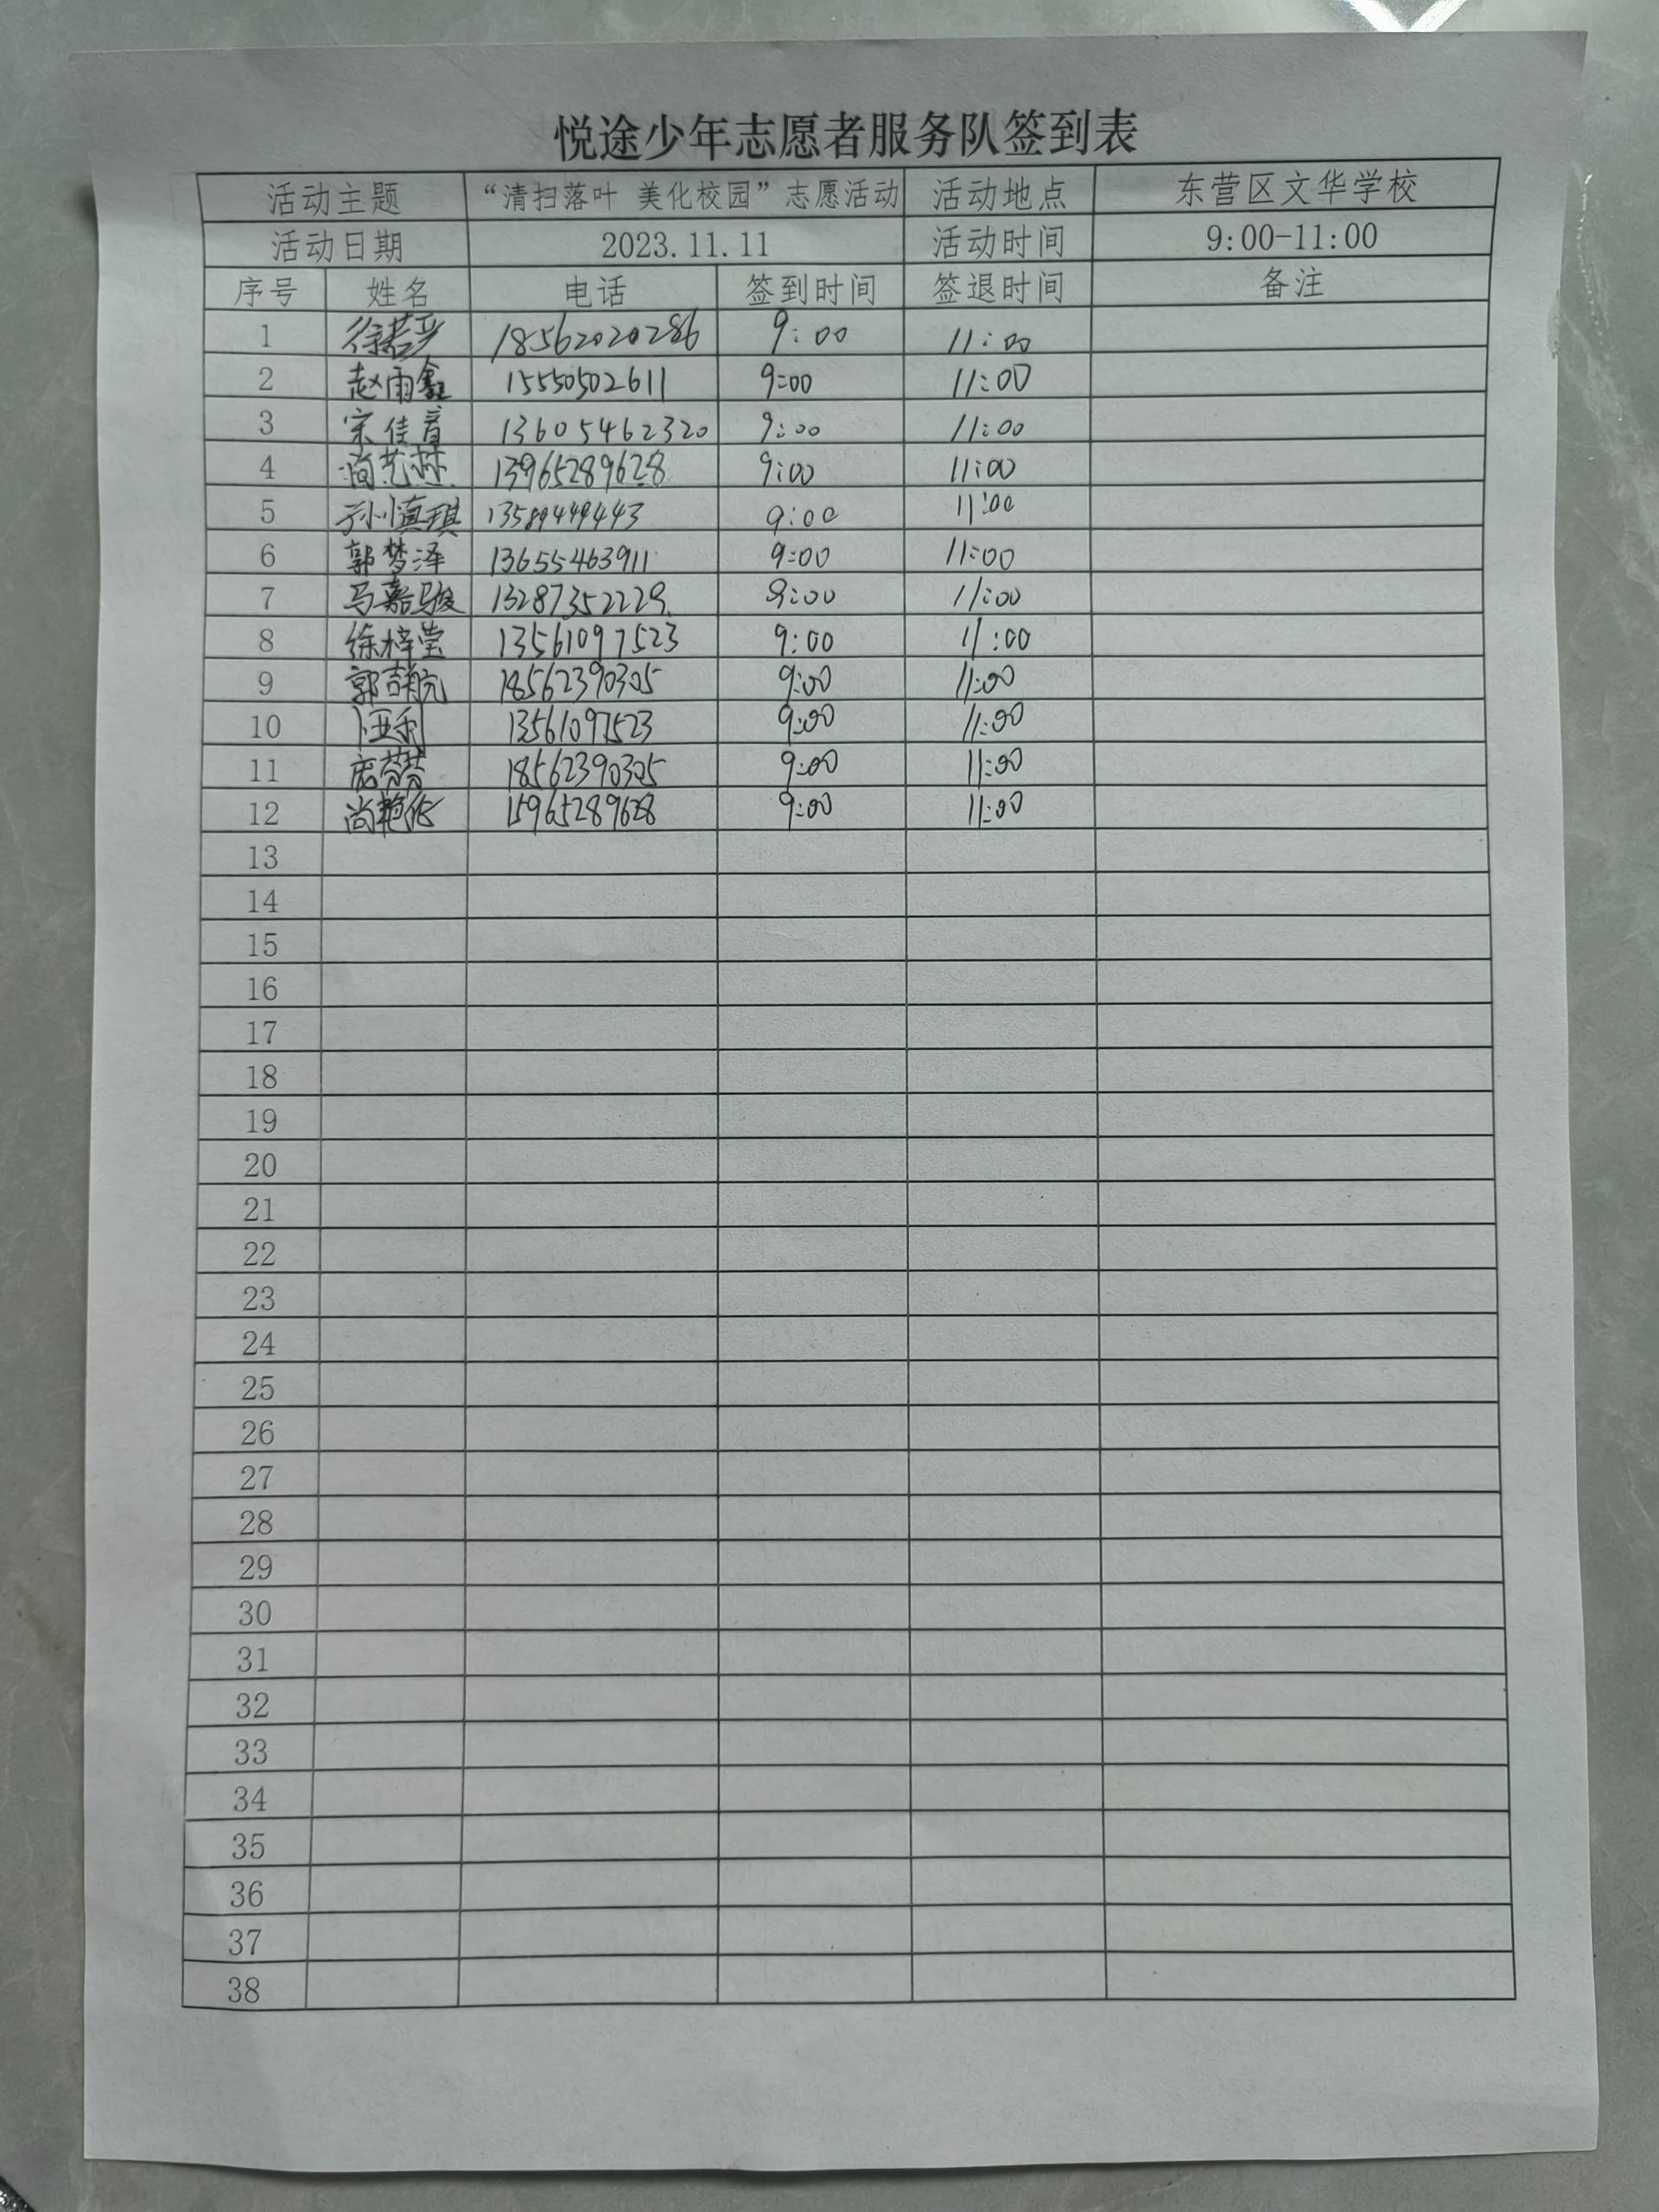 悦途少年志愿者服务队签到表
活动主题 “清扫落叶 美化校园”志愿活动 活动地点 东营区文华学校
活动日期 2023.11.11 活动时间 9:00-11:00
序号 姓名 电话 签到时间 签退时间 备注
1 徐若 18562020286 9:00 11:00
2 赵雨鑫 15550502611 9:00 11:00
3 宋佳音 13605462320 9:00 11:00
4 尚艺赫 13965289628 9:00 11:00
5 孙慎琪 1358949443 9:00 11:00
6 郭梦泽 13655463911 9:00 11:00
7 马嘉骏 13287352229 9:00 11:00
8 徐梓莹 13561097523 9:00 11:00
9 郭 航 18562390305 9:00 11:00
10 卜亚利 13561097523 9:00 11:00
11 庞芬芬 18562390305 9:00 11:00
12 尚艳华 15965289628 9:00 11:00
13
14
15
16
17
18
19
20
21
22
23
24
25
26
27
28
29
30
31
32
33
34
35
36
37
38